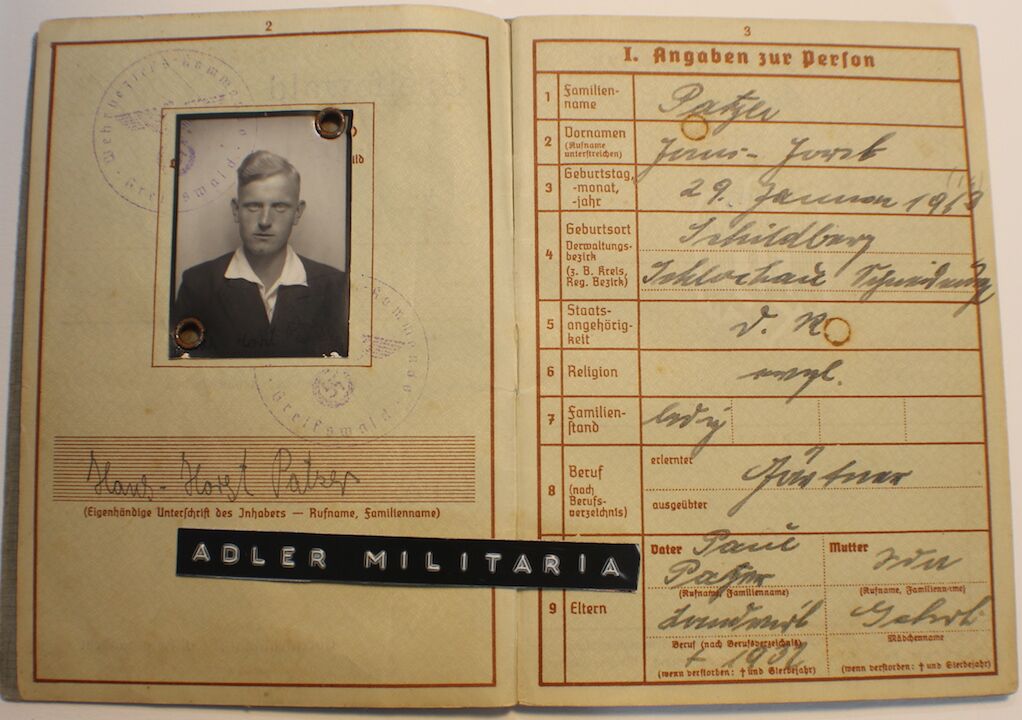 2
Wehrbezirks-Kommando
Greifswald
Kommando
Greifswald
Hans-Horst Patzer
(Eigenhändige Unterschrift des Inhabers — Rufname, Familienname)
ADLER MILITARIA
3
I. Angaben zur Person
1 Familien-
name
Patzer
2 Vornamen
(Rufname
unterstreichen)
Hans-Horst
3 Geburtstag,
-monat,
-jahr
29. Januar
4 Geburtsort
Verwaltungs-
bezirk
(z. B. Kreis,
Reg. Bezirk)
Schildberg
Schlochau
5 Staats-
angehörig-
keit
d. R.
6 Religion
evgl.
7 Familien-
stand
ledig
8 Beruf
(nach
Berufs-
verzeichnis)
erlernter
Gärtner
ausgeübter
9 Eltern
Vater Paul
Patzer
(Rufname, Familienname)
Landwirt
Beruf (nach Berufsverzeichnis)
† 1932
(wenn verstorben: † und Sterbejahr)
Mutter
Ida
(Rufname, Familienname)
Mädchenname
(wenn verstorben: † und Sterbejahr)